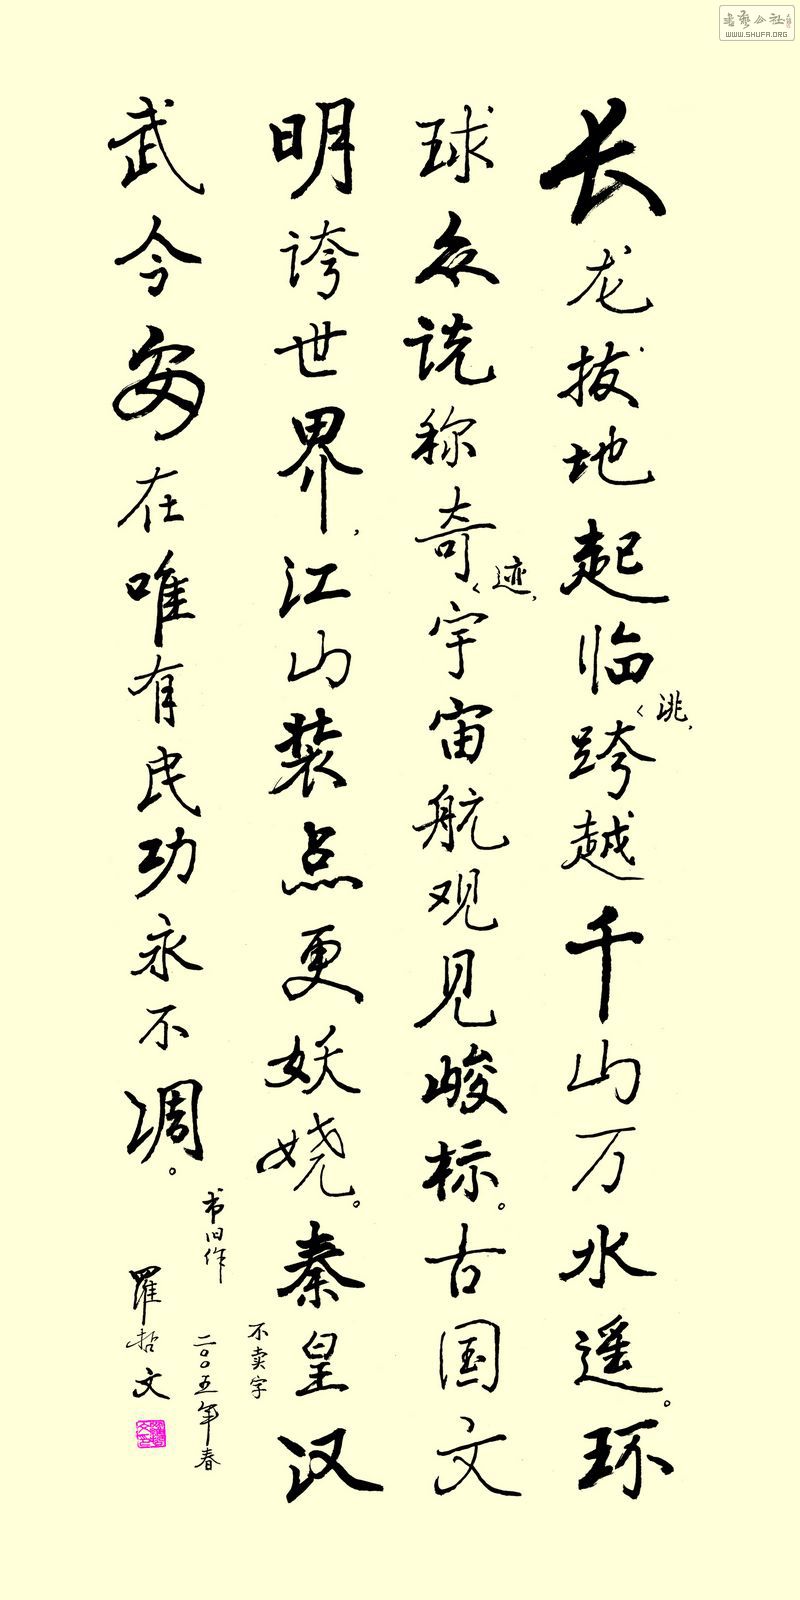 长龙拔地起临洮,跨越千山万水遥。环
球众说称奇迹,宇宙航观见峻标。古国文
明誇世界,江山装点更妖娆。秦皇汉
武今安在唯有民功永不凋。
书旧作
不卖字
二〇〇五年春
羅哲文
书艺公社
WWW.SHUFA.ORG